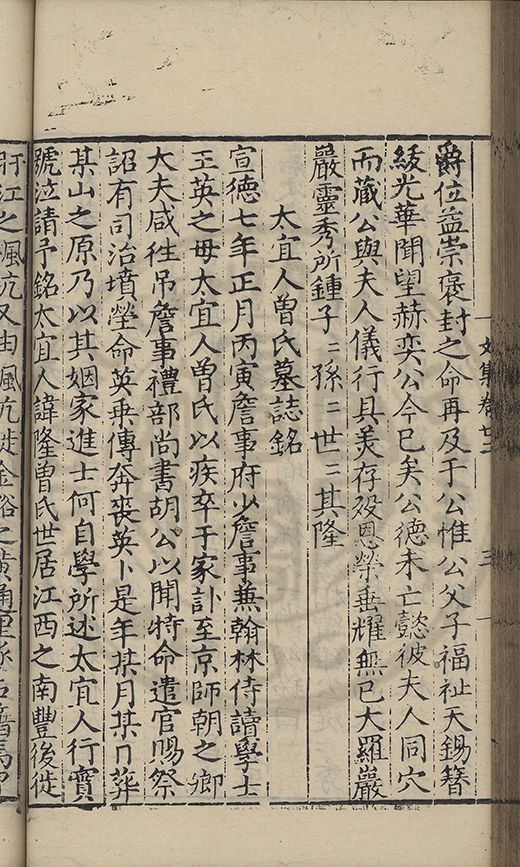 爵位益崇褒封之命再及于公惟公父子福祉天錫簪
綬光華聞望赫奕公今已矣公德未亡懿彼夫人同穴
而藏公與夫人儀行具美存殁恩榮垂耀無已大羅巖
巖靈秀所鍾子〻孫〻世〻其隆
大宜人曾氏墓誌銘
宣德七年正月丙寅詹事府少詹事兼翰林侍讀學士
王英之母太宜人曾氏以疾卒于家訃至京師朝之卿
大夫咸徃吊詹事禮部尚書胡公以聞特命遣官賜祭
詔有司治墳塋命英乗傳奔喪英卜是年某月某日葬
某山之原乃以其姻家進士何自學所述太宜人行實
號泣請予銘太宜人諱隆曾氏世居江西之南豐後徙
盱江之渢坑又由渢坑徙金谿之黃
文集卷七
三